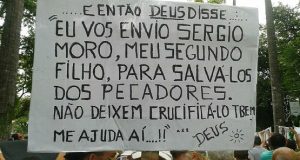 .....E ENTÃO DEUS DISSE...
EU VOS ENVIO SERGIO
MORO, MEU SEGUNDO
FILHO, PARA SALVÁ-LOS
DOS PECADORES.
NÃO DEIXEM CRUCIFICÁ-LO TBEM
ME AJUDA AÍ...!!" ...
DEUS